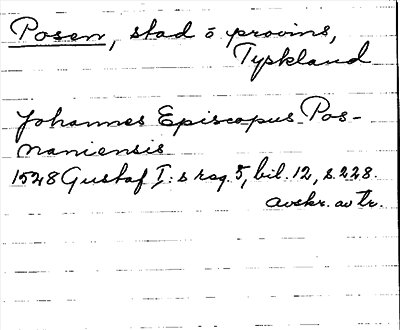 Posen, stad o provins,
Tyskland
Johannes Episcopus Pos-
naniensis
1528 Gustaf I:s rsg. 5, bil. 12, s. 228.
avskr. av tr.